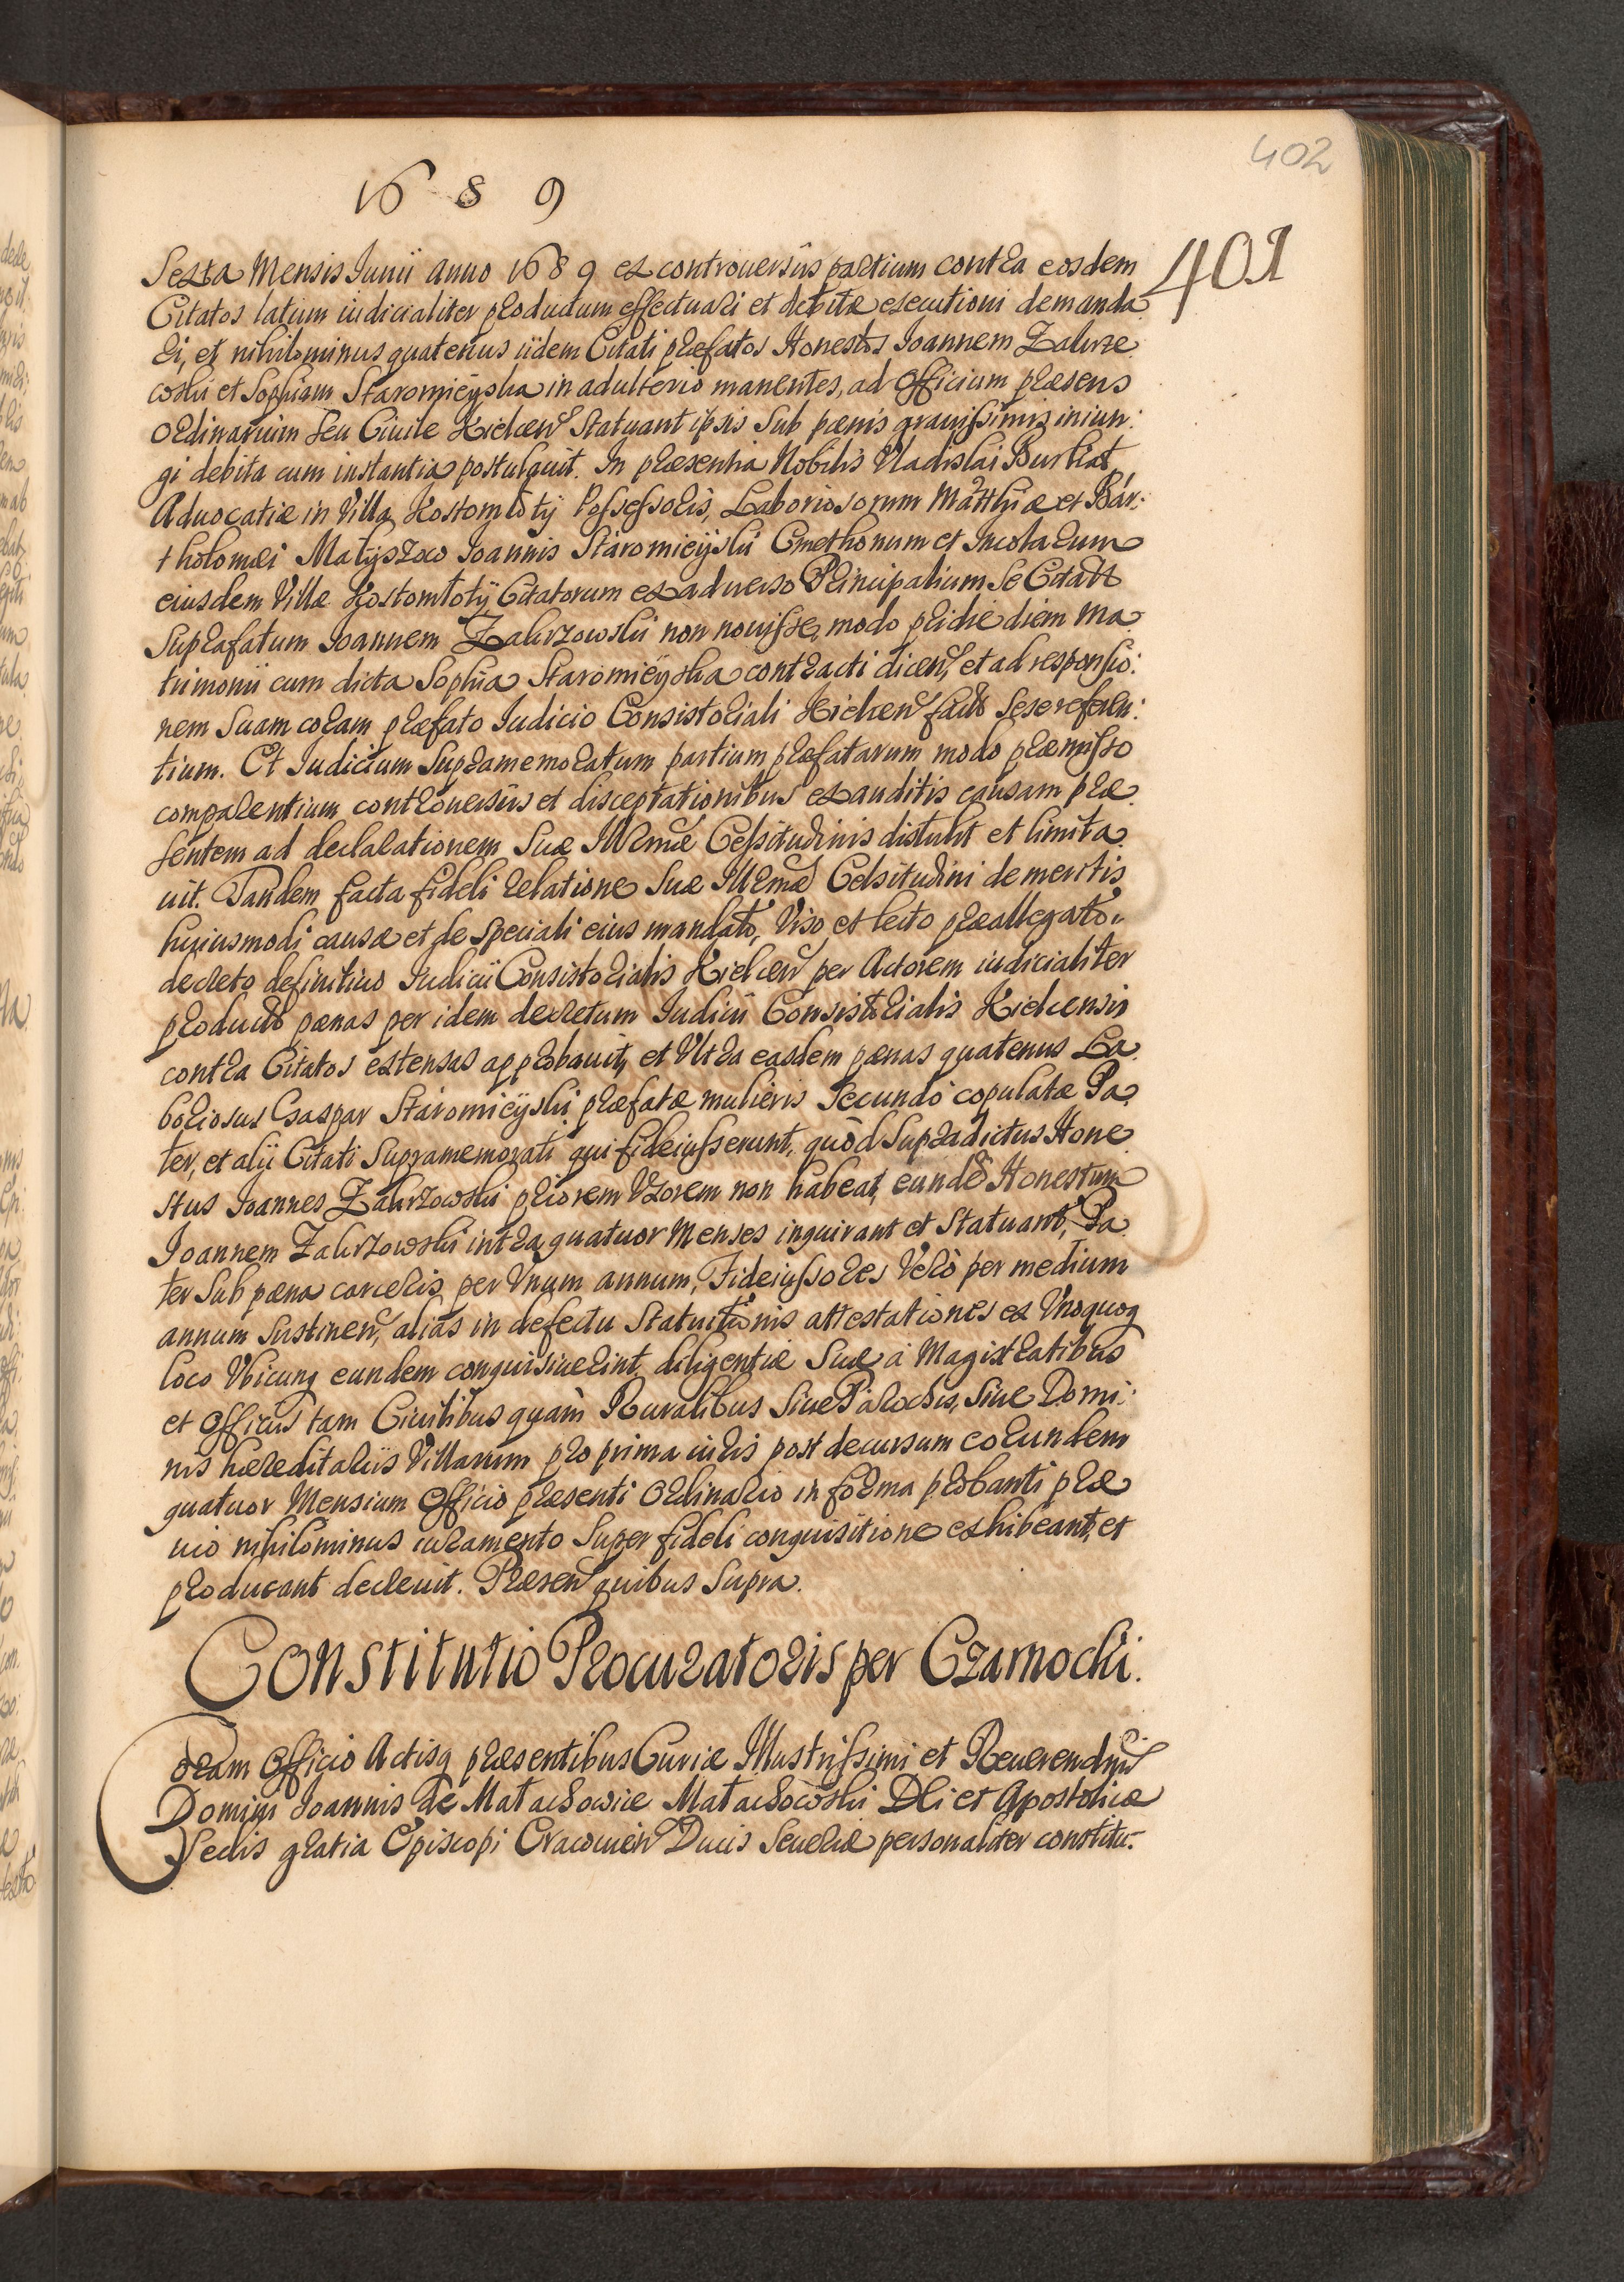 402
1689
401
Sexta Mensis Junii anno 1689 ex controuersiis partium contra eosdem
Citatos latum iudicialiter productum effectuari et debitæ executioni demanda
ri, et nihilominus quatenus iidem Citati præfatos Honestos Joannem Zakrze
woski et Sophiam Staromieÿska in adulterio manentes, ad Officium præsens
Ordinarium seu Ciuile Kielcen statuant ipsis sub pœnis grauissimis iniun:
gi debita cum instantia postulauit. In præsentia Nobilis Vladislai Burkat
Aduocatiæ in Villa Kostomłotÿ Possessoris, Laboriosorum Matthiæ et Bar:
tholomæi Matÿszow Joannis Staromieÿski Cmethonum et Incolarum
eiusdem Villæ Kostomłotÿ Citatorum ex aduerso Principalium se Citatt
supræfatum Joannem Zakrzowski non nouisse, modo pridie diem Ma
trimonii cum dicta Sophia Staromieÿska contracti dicen, et ad responsio:
nem suam coram præfato Iudicio Consistoriali Kielcen facto sese referen:
tium. Et Iudicium supramemoratum partium præfatarum modo præmisso
comparentium controuersiis et disceptationibus exauditis causam præ
sentem ad declarationem Suæ Illrmæ Celsitudinis distulit et limita
uit. Tandem facta fideli relatione Suæ Illrmæ Celsitudini de meritis
huiusmodi causæ et de speciali eius mandato, Viso et lecto præallegato
decreto definitiuo Iudicii Consistorialis Kielcen per Actorem iudicialiter
producto pœnas per idem decretum Iudicii Consistorialis Kielcensis
contra Citatos extensas approbauit, et Vltra easdem pœnas quatenus La
boriosus Gaspar Staromieÿski præfatæ mulieris secundo copulatæ Pa
ter, et alÿ Citati supramemorati qui fideiusserunt, quòd supradictus Hone
stus Joannes Zakrzowski priorem Vxorem non habeat, eundē Honestum
Joannem Zakrzowski intra quatuor Menses inquirant et statuant, Pa
ter sub pœna carceris per Vnum annum, Fideiussores Verò per medium
annum sustinen, alias in defectu statuitionis attestationes ex Vnoquoq
loco Vbicunq eundem conquisiuerint, diligentiæ suæ à Magistratibus
et Officiis tam Ciuilibus quàm Ruralibus siue Parochis, siue Domi:
nis hæreditariis Villarum pro prima iuris post decursum eorundem
quatuor Mensium Officio præsenti Ordinario in forma probanti præ
uio nihilominus iuramento super fideli conquisitione exhibeant, et
producant decreuit. Præsen quibus supra.
Constitutio Procuratoris per Czarnocki.
Coram Officio Actisq præsentibus Curiæ Illustrissimi et Reuerendmi
Domini Joannis de Małachowice Małachowski Dei et Apostolicæ
Sedis gratia Episcopi Cracouien Ducis Seueriæ personaliter constitu-